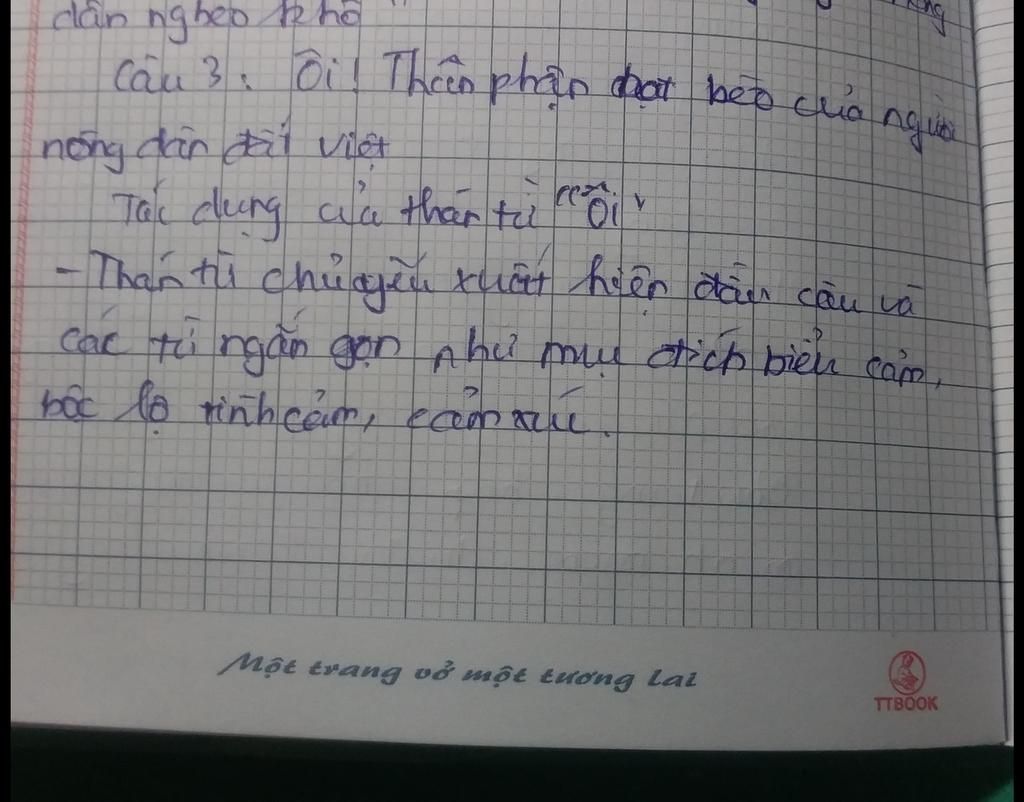 dân nghèo khổ
Câu 3: Ôi! Thân phận bọt bèo của người
nông dân đất việt
Tác dụng của thán từ "Ôi"
- Thán từ chủ yếu xuất hiện đầu câu và
các từ ngắn gọn như mụ đích biểu cảm,
bộc lộ tình cảm, cảm xúc.
Một trang vở một tương lai
TTBOOK